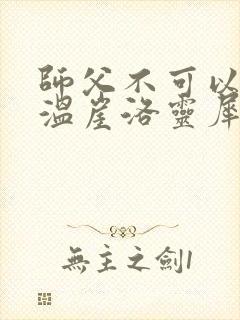 師父不可以
溫崖洛靈犀
無主之劍1